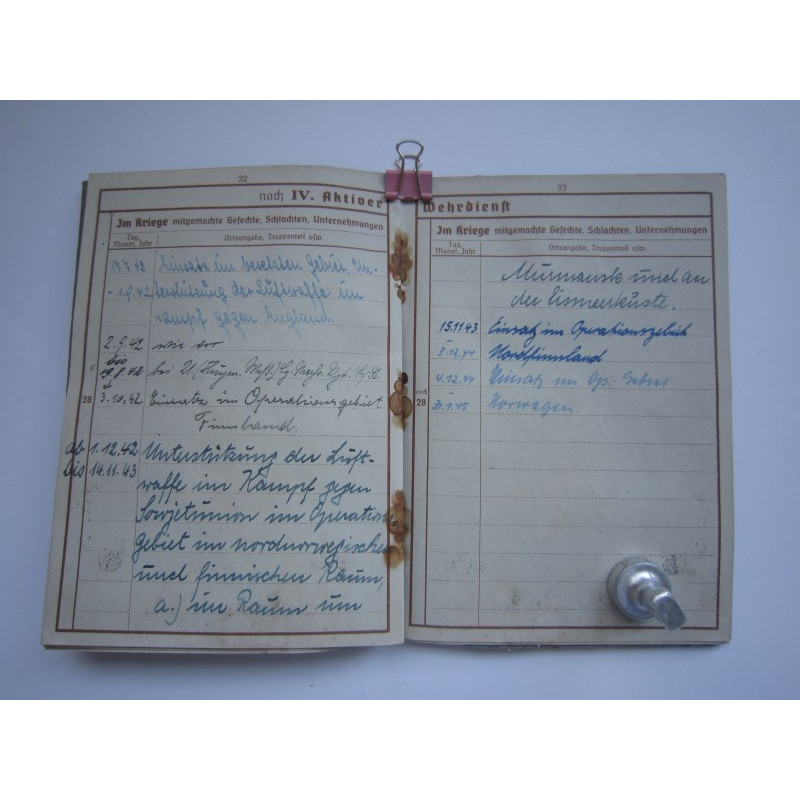 32
noch IV. Aktiver
Im Kriege mitgemachte Gefechte, Schlachten, Unternehmungen
Tag, Monat, Jahr
Ortsangabe, Truppenteil usw.
17.7.42 Einsatz im besetzten Gebiet Un-
- 1.9.42 terstützung der Luftwaffe im
Kampf gegen England.
2.9.42 wie vor
bis
bei
28 3.10.42 Einsatz im Operationsgebiet
Finnland.
ab 1.12.42 Unterstützung der Luft-
bis 14.11.43 waffe im Kampf gegen
Sowjetunion im Operations-
gebiet im nordnorwegischen
und finnischen Raum,
a.) im Raum um
33
Wehrdienst
Im Kriege mitgemachte Gefechte, Schlachten, Unternehmungen
Tag, Monat, Jahr
Ortsangabe, Truppenteil usw.
Murmansk und an
der Eismeerküste.
15.11.43 Einsatz im Operationsgebiet
- 3.12.44 Nordfinnland
4.12.44 Einsatz im Op.-Gebiet
noch 28 - 45 Norwegen.